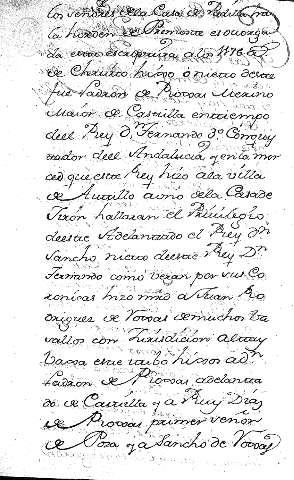 los señores de la Casa de Padilla
la horden de Premonte es otorga
da esta escriptura año 1176 es
de Chruto hixo o nieto deste
fue Ladron de Roxas Merino
Maior de Castilla en tiempo
deel Rey Dn Fernando 3º Conquis
tador deel Andalucia y en la mer
ced que este Rey hizo a la villa
de Autillo a uno de la Casa de
Xirón hallaran el Privilegio
deeste Adelantado el Rey Dn
Sancho nieto deeste Rey Dn
Fernando como veran por sus Co
ronicas hizo mrd a Juan Ro
driguez de Roxas de muchos va
vallos con Jurisdicion alta y
baxa este tubo hixos a Dn
Ladron de Roxas adelanta
do de Castilla y a Ruy Diaz
de Roxas primer señor
de Poza y a Sancho de Roxas